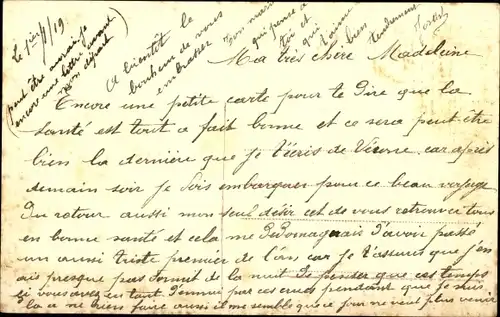 Le 1er / 1 / 19
(peut être aurai-je
encore une lettre avant
mon départ)
A bientôt le
bonheur de vous
embrasser
Ton mari
qui pense à
toi et
qui t'aime
bien
tendrement
Ma très chère Madeleine
Encore une petite carte pour te dire que la
santé est tout à fait bonne et ce sera peut-être
bien la dernière que je t'écris de Vienne car après
demain soir je dois embarquer pour ce beau voyage
du retour aussi mon seul désir est de vous retrouver tous
en bonne santé et cela me dédomagerais d'avoir passé
un aussi triste premier de l'an car je t'assures que j'en
ais presque pas dormit de la nuit de penser que ces temps
si vous avez eu tant d'ennui par ces crues pendant que je suis
là à ne rien faire aussi il me semble que ce jour ne veut plus venir